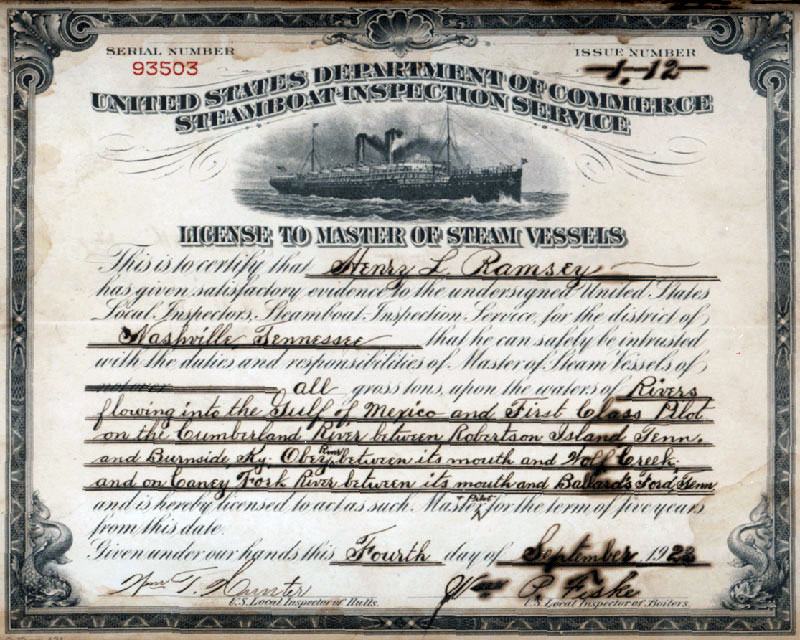 SERIAL NUMBER
93503
ISSUE NUMBER
1. 12
UNITED STATES DEPARTMENT OF COMMERCE
STEAMBOAT-INSPECTION SERVICE
LICENSE TO MASTER OF STEAM VESSELS
This is to certify that Henry L. Ramsey
has given satisfactory evidence to the undersigned United States
Local Inspectors, Steamboat Inspection Service, for the district of
Nashville, Tennessee that he can safely be intrusted
with the duties and responsibilities of Master of Steam Vessels of
all gross tons, upon the waters of Rivers
flowing into the Gulf of Mexico and First Class Pilot
on the Cumberland River between Robertson Island Tenn.
and Burnside, Ky; Obey River between its mouth and Wolf Creek
and on Caney Fork River between its mouth and Ballard's Ford, Tenn
and is hereby licensed to act as such Master & Pilot for the term of five years
from this date.
Given under our hands this Fourth day of September 1922
Wm T. Hunter
P. Fiske
U.S. Local Inspector of Hulls.
U.S. Local Inspector of Boilers.